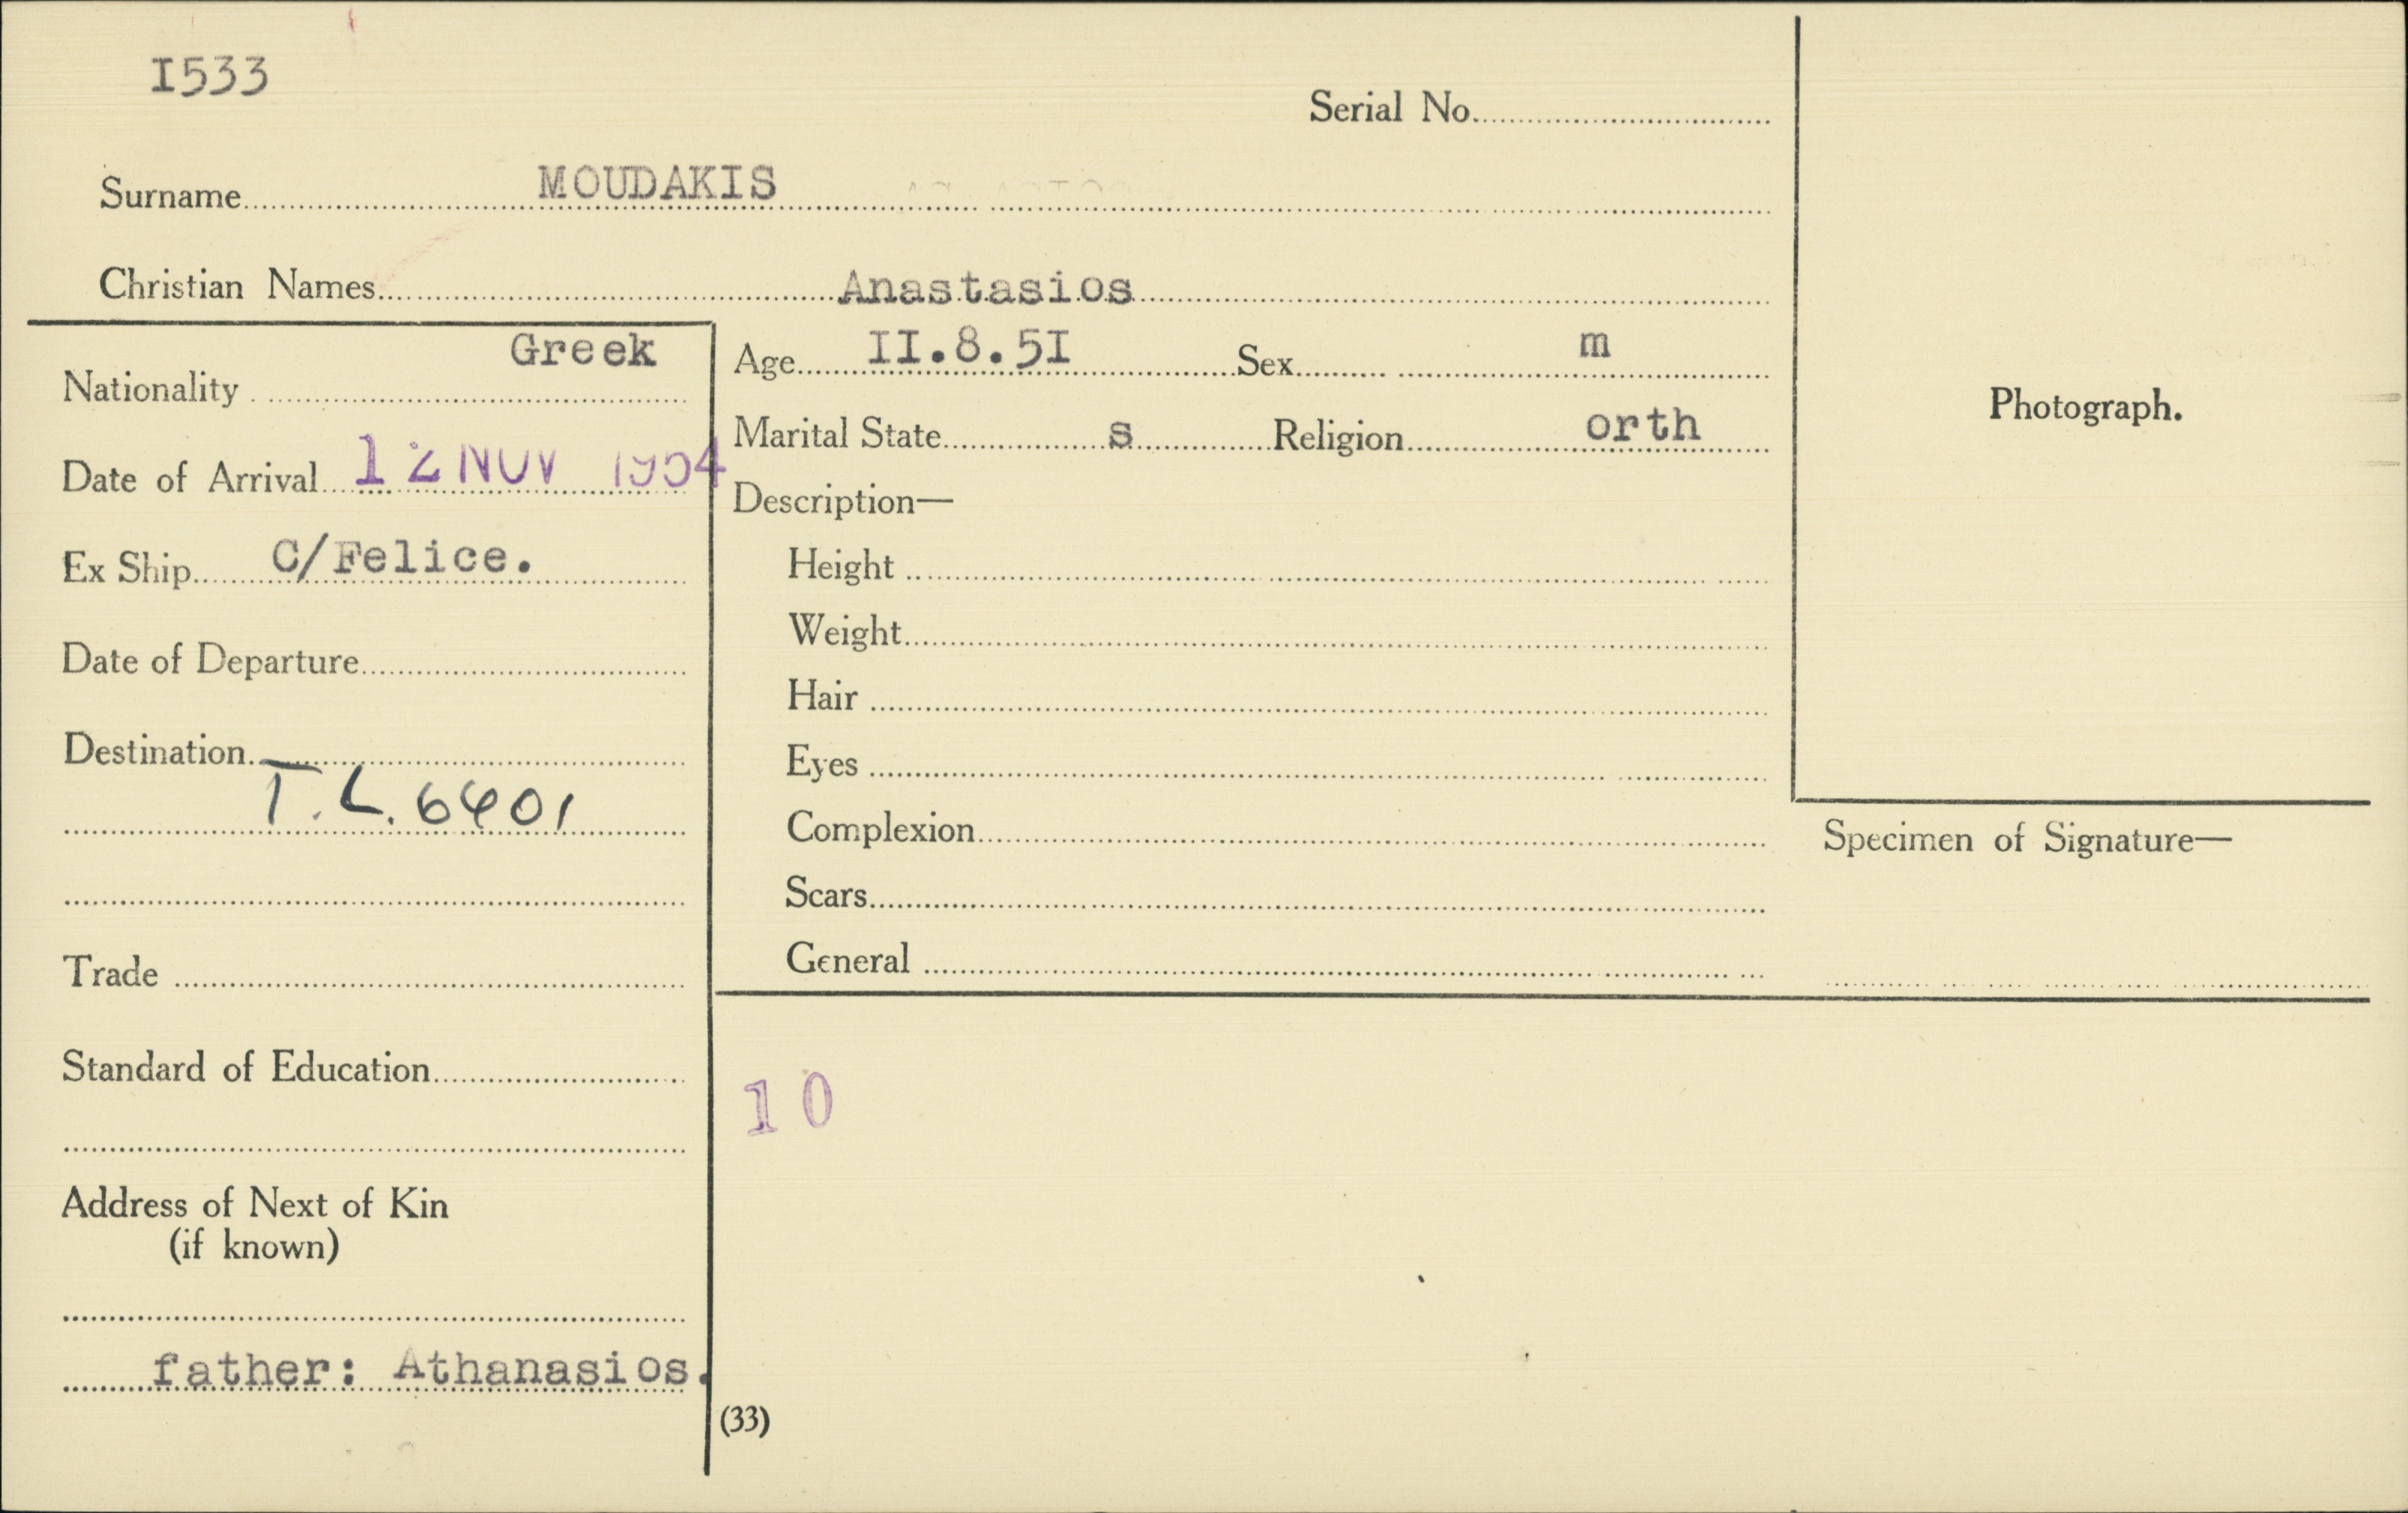 I533
Serial No.
Surname MOUDAKIS
Christian Names Anastasios
Nationality Greek
Date of Arrival 12 NOV 1954
Ex Ship C/Felice.
Date of Departure
Destination
T.L. 6401
Trade
Standard of Education
Address of Next of Kin
(if known)
father: Athanasios.
Age II.8.5I Sex m
Marital State s Religion orth
Description—
Height
Weight
Hair
Eyes
Complexion
Scars
General
Photograph.
Specimen of Signature—
10
(33)